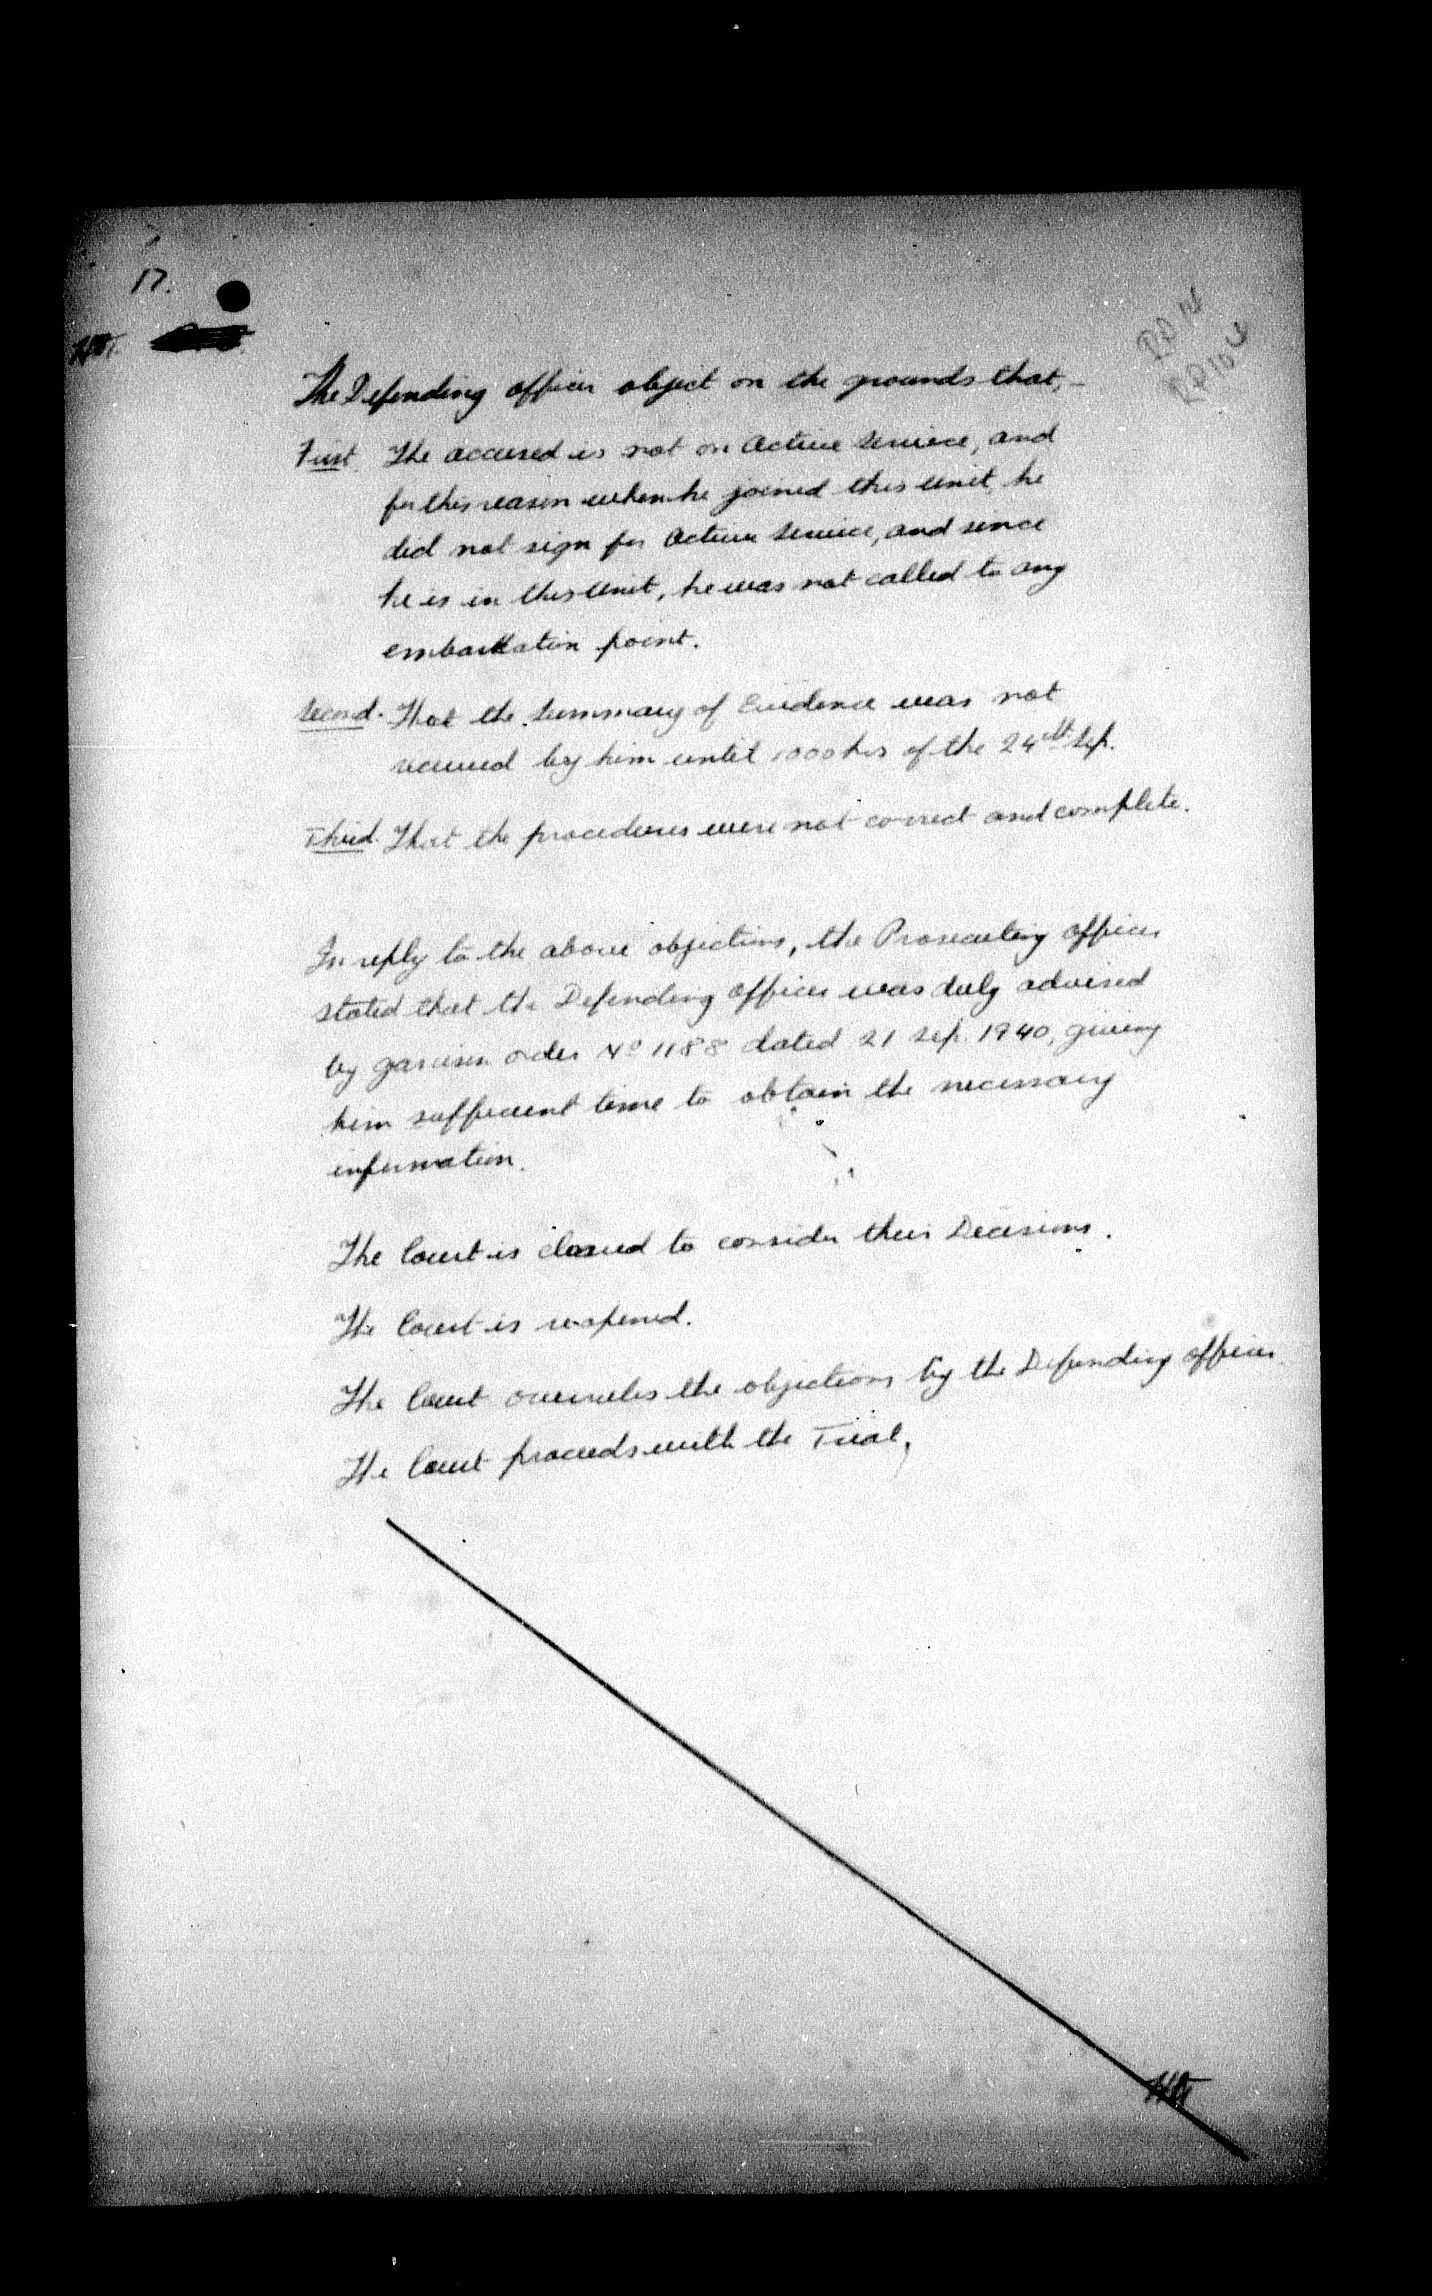 17.
The Defending officer object on the grounds that,-
First. The accused is not on Active Service, and
for this reason when he joined this unit he
did not sign for Active Service, and since
he is in this Unit, he was not called to any
embarkation point.
Second. That the Summary of Evidence was not
received by him until 1000 hrs of the 24th Sep.
Third. That the procedures were not correct and complete.
In reply to the above objections, the Prosecuting officer
stated that the Defending officer was duly advised
by garrison order No 1188 dated 21 Sep. 1940, giving
him sufficient time to obtain the necessary
information.
The Court is closed to consider their Decisions.
The Court is reopened.
The Court overrules the objections by the Defending officer.
The Court proceeds with the Trial.